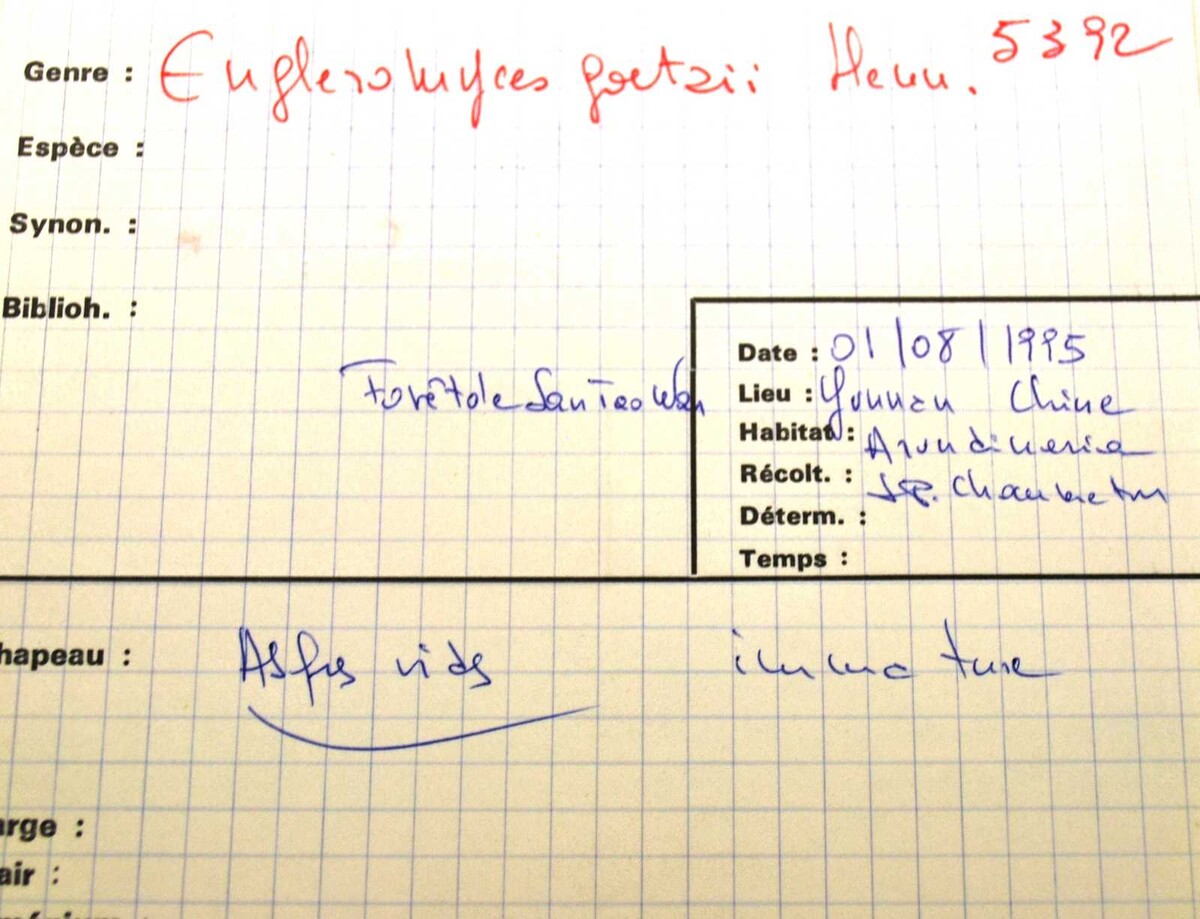 Genre : Engleromyces goetzii Henn. 5392
Espèce :
Synon. :
Biblioh. :
Forêt de San Tao Wan
Date : 01/08/1995
Lieu : Yunnan Chine
Habitat : Arundineria
Récolt. : J.P. Chaumeton
Déterm. :
Temps :
hapeau : Asques vides immature
arge :
air :